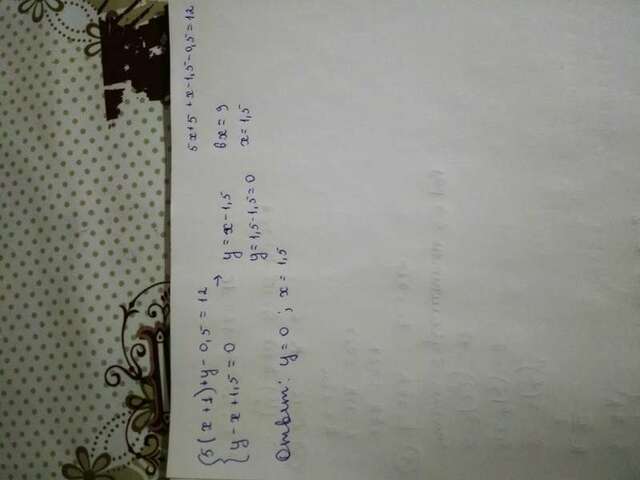 {5(x+1)+y-0,5=12
{y-x+1,5=0 → y=x-1,5
y=1,5-1,5=0
5x+5+x-1,5-0,5=12
6x=9
x=1,5
Ответ: y=0; x=1,5